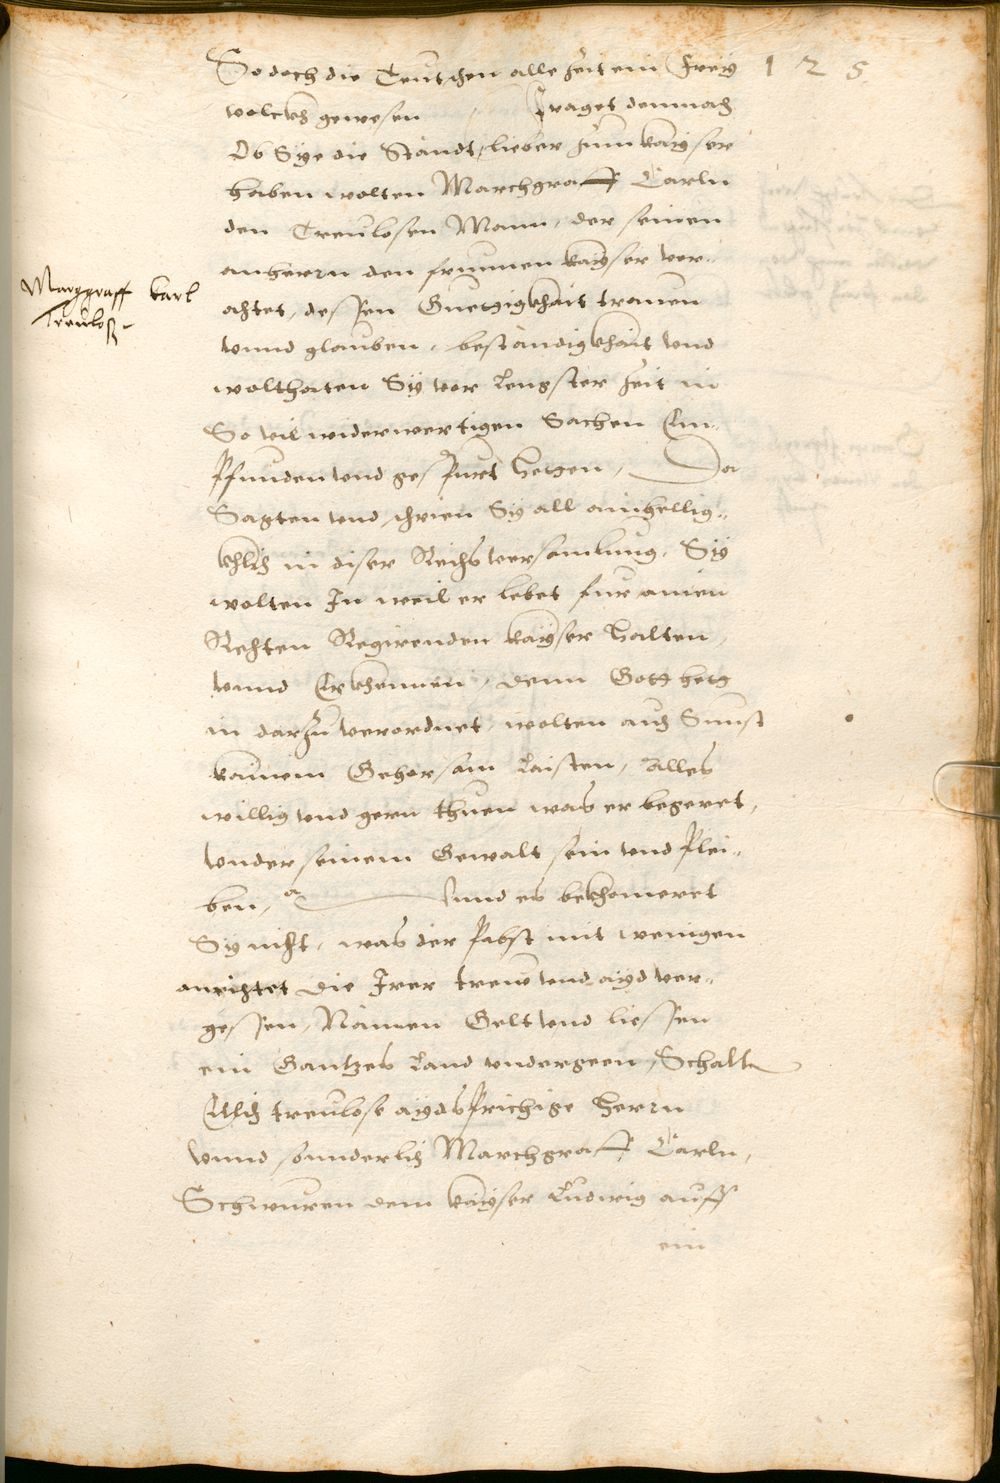 So doch die Teutschen alle zeit ein Frey 125
volckh gewesen Fraget demnach
Ob Sye die Ständt, lieber zum kayser
haben wolten Marchgraff Carln
den Treulosen Mann, der seinen
anherrn den frummen kayser ver„
achtet, dessen Guetigkhait trauen
Marggraff Karl
treuloß
vnnd glauben, beständigkhait vnd
wolthaten Sy vor lengster zeit in
So vil widerwertigen Sachen Em„
pfunden vnd gespuret hetzen, Da
Sagten vnd schrien Sy all ainhellig„
khlich in diser Reichs versamlung, Sy
wolten In weil er lebet fur ainen
Rechten Regirenden kayser halten,
vnnd Erkhennen, denn Gott hets
in darzu verordnet, wolten auch Sunst
kainem Gehorsam laisten, Alles
willig vnd gern thuen was er begeret,
vnder seinem Gewalt sein vnd plei„
ben, vnnd es bekhomeret
Sy nicht, was der Pabst mit wenigen
anrichtet die Irer treue vnd ayd ver„
gessen, Namen Gelt vnd liessen
ein Gantzes Land vndergeen, Schalten
Etlich treulose aydsprichige Herrn
vnnd sonderlich Marchgraff Carln,
Schwuren dem kayser Ludwig auff
ein